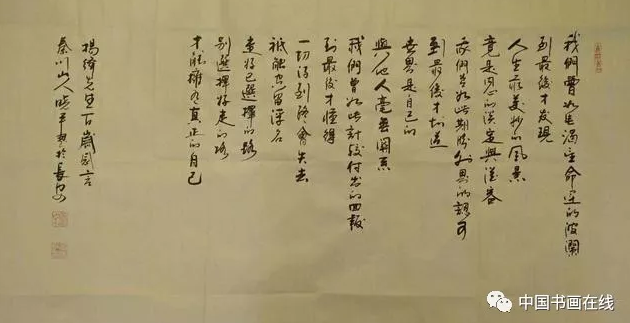 我們曾如此渴望命運的波瀾
到最後才發現
人生最美妙的風景
竟是内心的淡定與從容
我們曾如此期盼外界的認可
到最後才知道
世界是自己的
與他人毫無關系
我們曾如此計較付出的回報
到最後才懂得
一切得到終會失去
祗能空留名
走好已選擇的路
別選擇好走的路
才能擁有真正的自己
楊絳先生百歲感言
秦川山人曉平於長安
中国书画在线